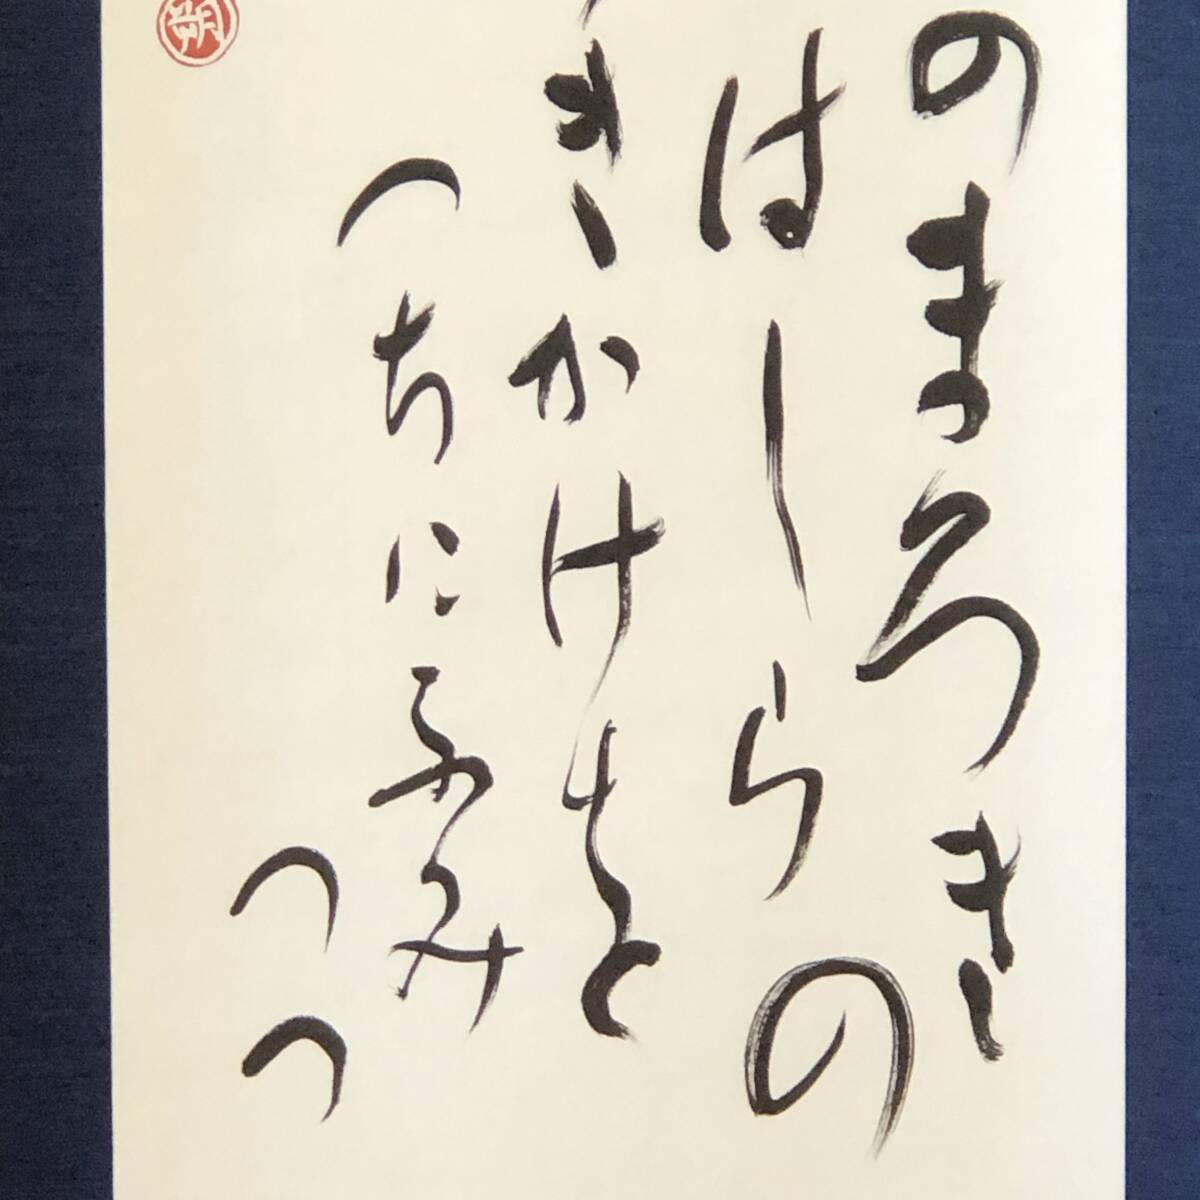 のまろき
はしらの
きかけを
つちにふみ
つつ
朔